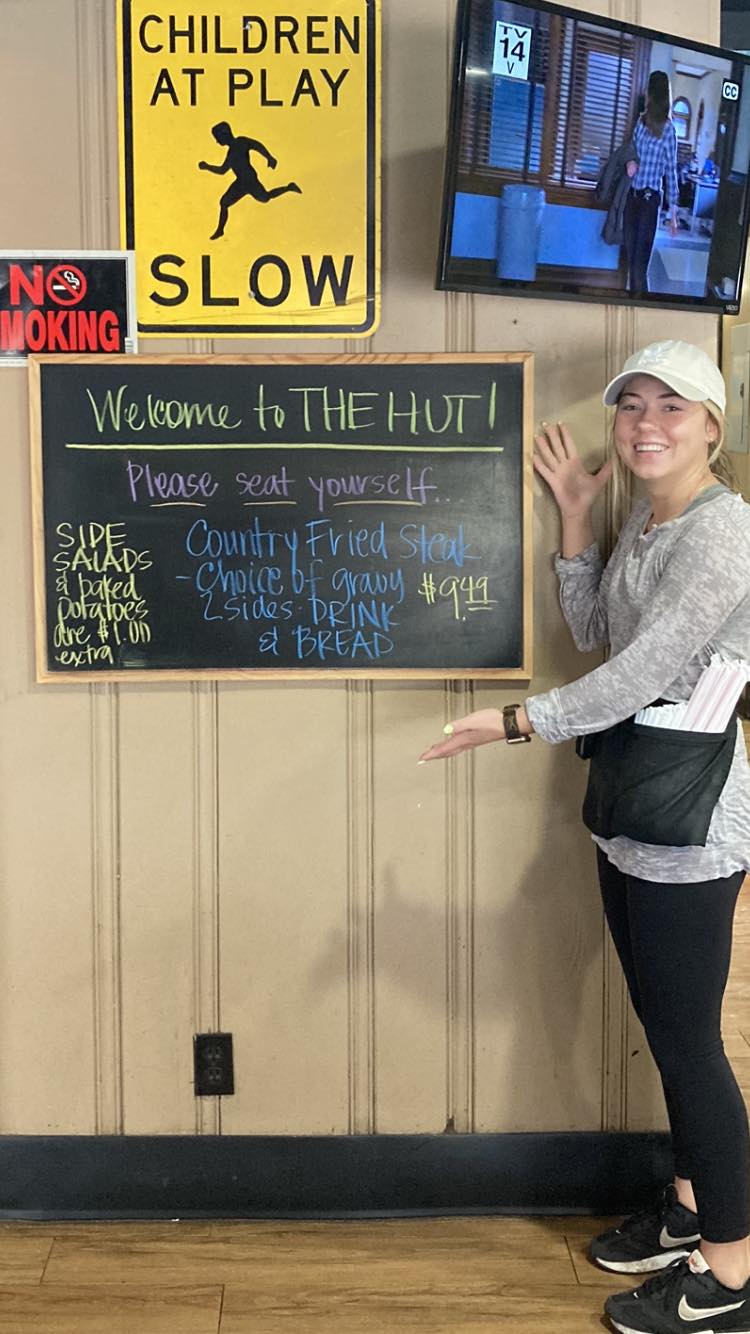 CHILDREN
AT PLAY
SLOW
TV
14
V
CC
VIZIO
NO
MOKING
Welcome to THE HUT!
Please seat yourself...
SIDE
SALADS
& baked
potatoes
are $1.00
extra
Country Fried Steak
-Choice of gravy $9.49
2 sides. DRINK
& BREAD